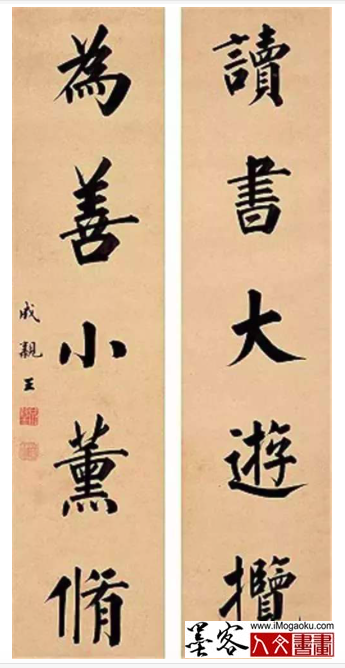 讀書大遊攬
為善小薰脩
成親王
www.iMogaoku.com
墨客 人文書畫